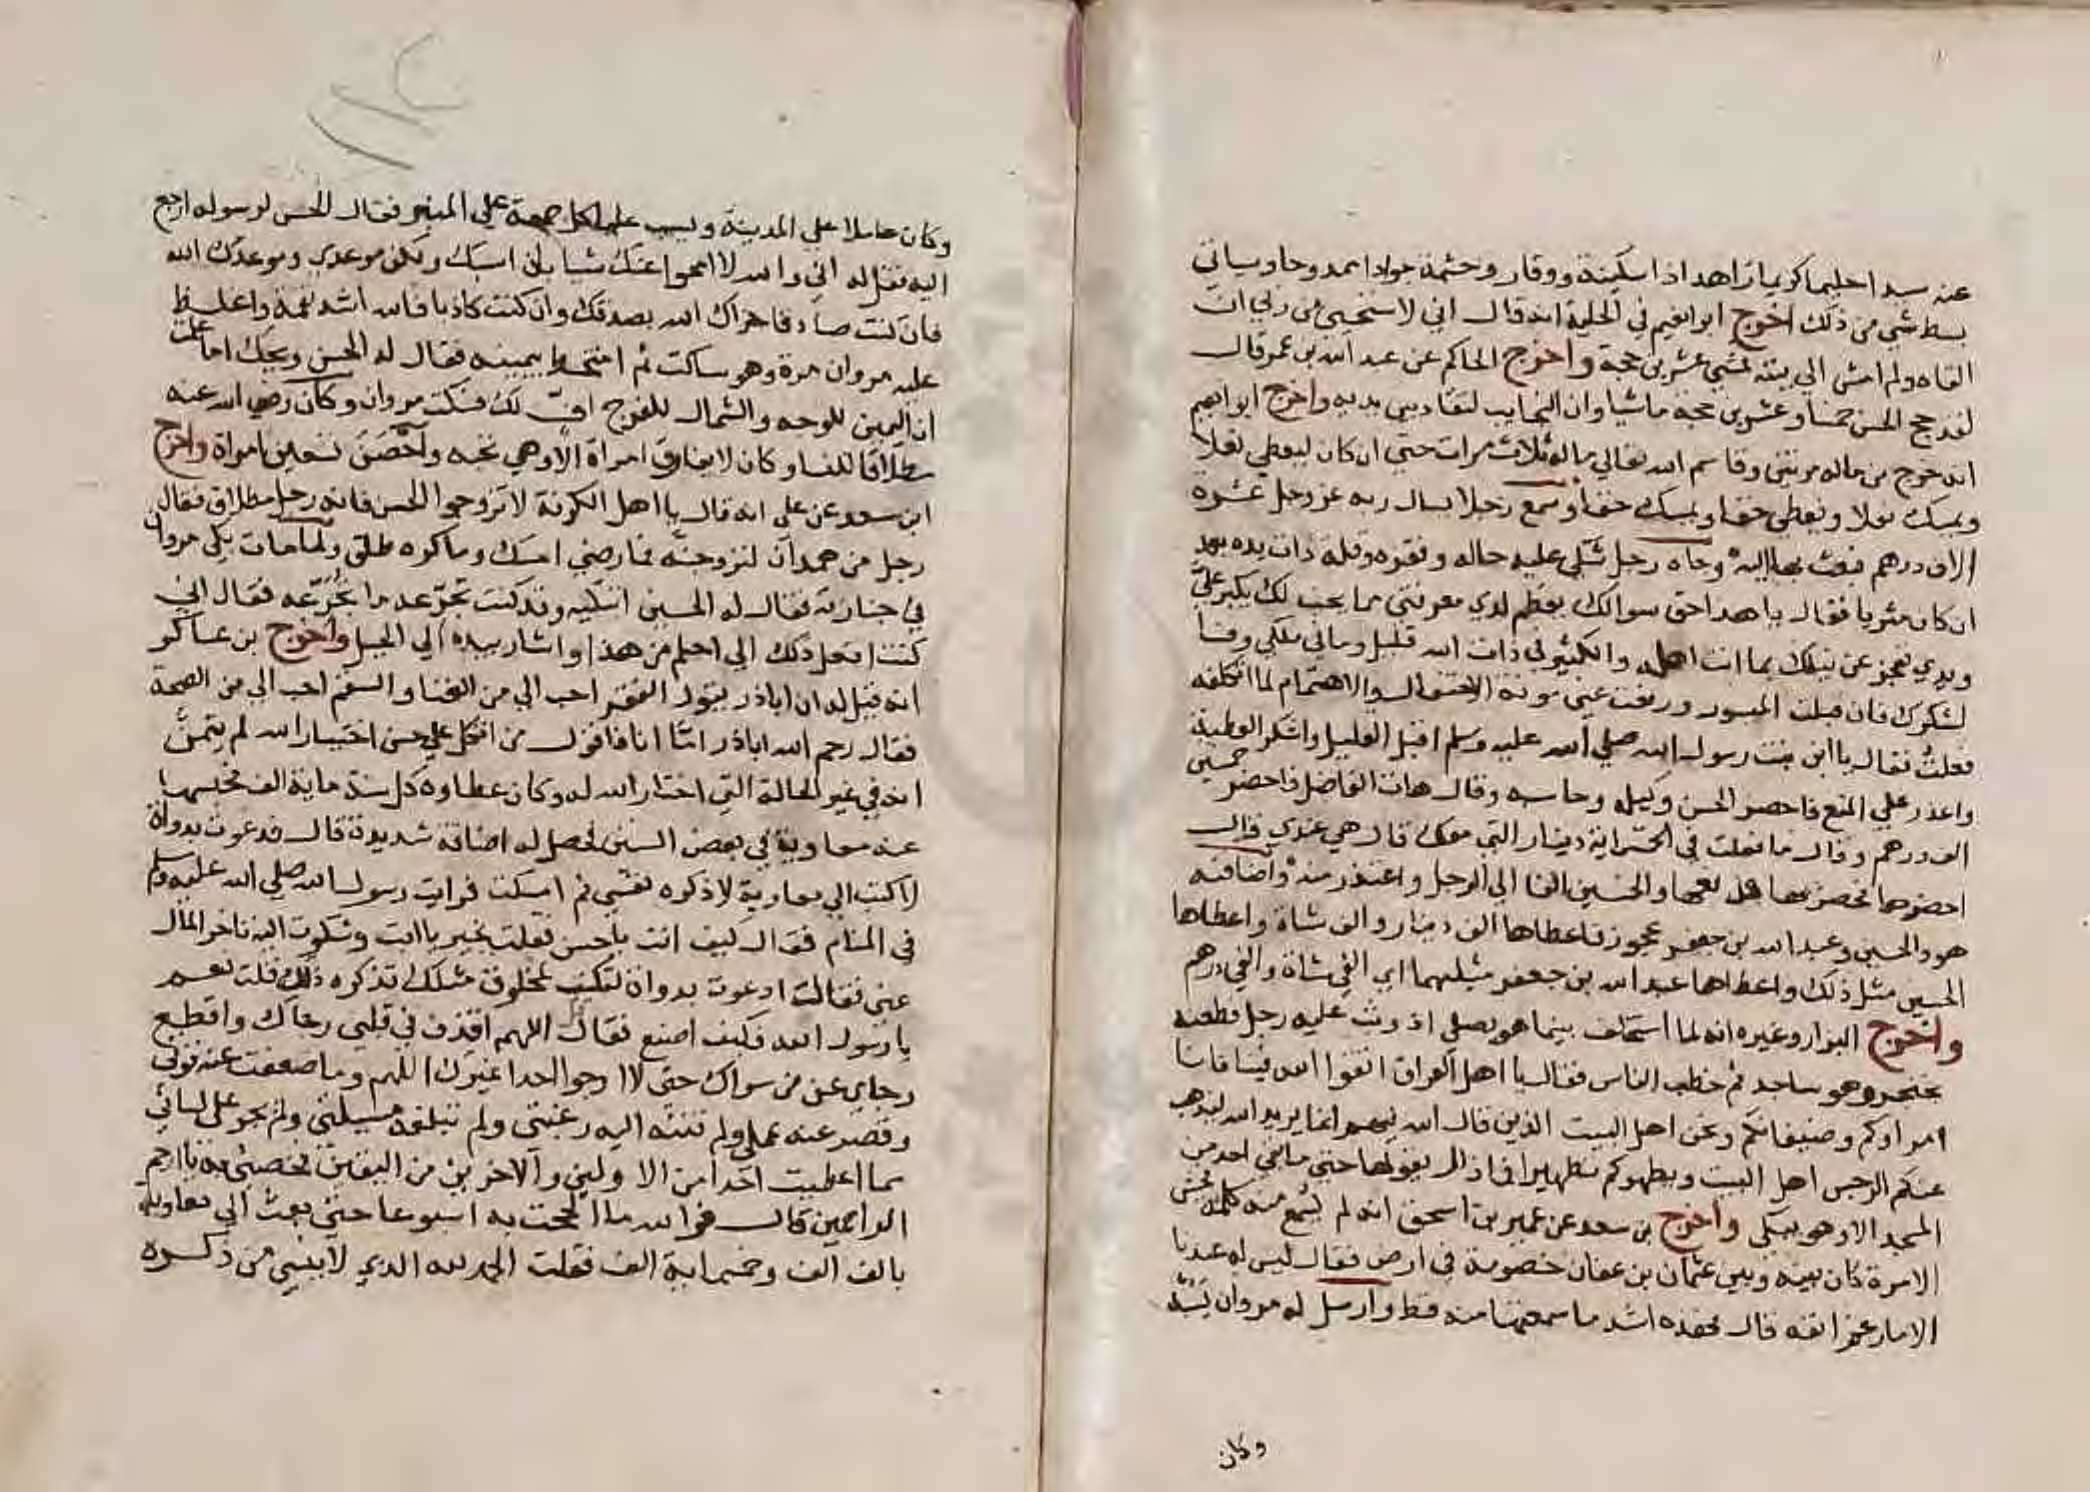 عنه سيدا حليما كريما زاهدا ذا سكينة ووقار وحشمة جوادا ممدوحا وسياتي
بسط شي من ذلك اخرج ابو نعيم في الحلية انه قال اني لاستحيي من ربي ان
القاه ولم امش الي بيته فمشي عشرين حجة واخرج الحاكم عن عبد الله بن عمر قال
لقد حج الحسن خمسا وعشرين حجة ماشيا وان النجايب لتقاد بين يديه واخرج ابو نعيم
انه خرج من ماله مرتين وقاسم الله تعالي ماله ثلاث مرات حتي ان كان ليعطي نعلا
ويمسك نعلا ويعطي خفا ويمسك خفا وسمع رجلا يسال ربه عز وجل عشرة
الاف درهم فبعث بها اليه وجاه رجل شكي عليه حاله وفقره وقلة ذات يده بعد
ان كان مثريا فقال يا هذا حق سوالك يعظم لدي معرفتي بما يجب لك يكبر علي
ويدي تعجز عن نيلك بما انت اهله والكثير في ذات الله قليل وما في ملكي وفا
لشكرك فان قبلت الميسور ورفعت عني مونة الاحتفال والاهتمام لما اتكلفه
فعلت فقال يا ابن بنت رسول الله صلي الله عليه وسلم اقبل القليل واشكر العطية
واعذر علي المنع فاحضر الحسن وكيله وحاسبه وقال هات الفاضل فاحضر خمسين
الف درهم وقال ما فعلت في الخمسماية دينار التي معك قال هي عندي قال
احضرها فاحضرها فدفعها والخمسين الفا الي الرجل واعتذر منه واضافته
هو والحسين وعبد الله بن جعفر عجوز فاعطاها الف دينار والف شاة واعطاها
الحسين مثل ذلك واعطاها عبد الله بن جعفر مثليهما اي الفي شاة والفي درهم
واخرج البزار وغيره انه لما استخلف بينما هو يصلي اذ وثب عليه رجل فطعنه
بخنجر وهو ساجد ثم خطب الناس فقال يا اهل العراق اتقوا الله فينا فانا
امراوكم وضيفانكم ونحن اهل البيت الذين قال الله فيهم انما يريد الله ليذهب
عنكم الرجس اهل البيت ويطهركم تطهيرا فما زال يقولها حتي ما بقي احد من
المسجد الا وهو يبكي واخرج بن سعد عن عمير بن اسحق انه لم يسمع منه كلمة فحش
الا مرة كان بينه وبين عثمان بن عفان خصومة في ارض فقال ليس له عندنا
الا ما رغم انفه قال فهذه اشد ما سمعتها منه قط وارسل له مروان يسبه
وكان
وكان عاملا علي المدينة ويسب عليا كل جمعة علي المنبر فقال الحسن لرسوله ارجع
اليه فقل له اني والله لا امحوا عنك شيا بان اسبك ولكن موعدي وموعدك الله
فان كنت صادقا جزاك الله بصدقك وان كنت كاذبا فالله اشد نقمة واغلظ
عليه مروان مرة وهو ساكت ثم امتخط بيمينه فقال له الحسن ويحك اما علمت
ان اليمين للوجه والشمال للفرج اف لك فسكت مروان وكان رضي الله عنه
مطلاقا للنسا وكان لا يفارق امراة الا وهي تحبه واحصن تسعين امراة واخرج
ابن سعد عن علي انه قال يا اهل الكوفة لا تزوجوا الحسن فانه رجل مطلاق فقال
رجل من همدان لنزوجنه فما رضي امسك وما كره طلق ولما مات بكي مروان
في جنازته فقال له الحسين اتبكيه وقد كنت تجرعه ما تجرعه فقال اني
كنت افعل ذلك الي احلم من هذا واشار بيده الي الجبل واخرج بن عساكر
انه قيل له ان اباذر يقول الفقر احب الي من الغنا والسقم احب الي من الصحة
فقال رحم الله اباذر اما انا فاقول من اتكل علي حسن اختيار الله لم يتمن
انه في غير الحالة التي اختار الله له وكان عطاوه كل سنة ماية الف فحبسها
عنه معاوية في بعض السنين فحصل له اضاقة شديدة قال فدعوت بدواة
لاكتب الي معاوية لاذكره نفسي ثم امسكت فرايت رسول الله صلي الله عليه وسلم
في المنام فقال كيف انت يا حسن فقلت بخير يا ابت وشكوت اليه تاخر المال
عني فقال ادعوت بدواة لتكتب لمخلوق مثلك تذكره ذلك قلت نعم
يا رسول الله فكيف اصنع فقال اللهم اقذف في قلبي رجاك واقطع
رجاي عن من سواك حتي لا ارجوا احدا غيرك اللهم وما ضعفت عنه قوتي
وقصر عنه عملي ولم تنته اليه رغبتي ولم تبلغه مسيلتي ولم يجر علي لساني
مما اعطيت احدا من الاولين والاخرين من اليقين فخصني به يا ارحم
الراحمين قال فوالله ما الححت به اسبوعا حتي بعث الي معاوية
بالف الف وخمسماية الف فقلت الحمد لله الذي لا ينسي من ذكره